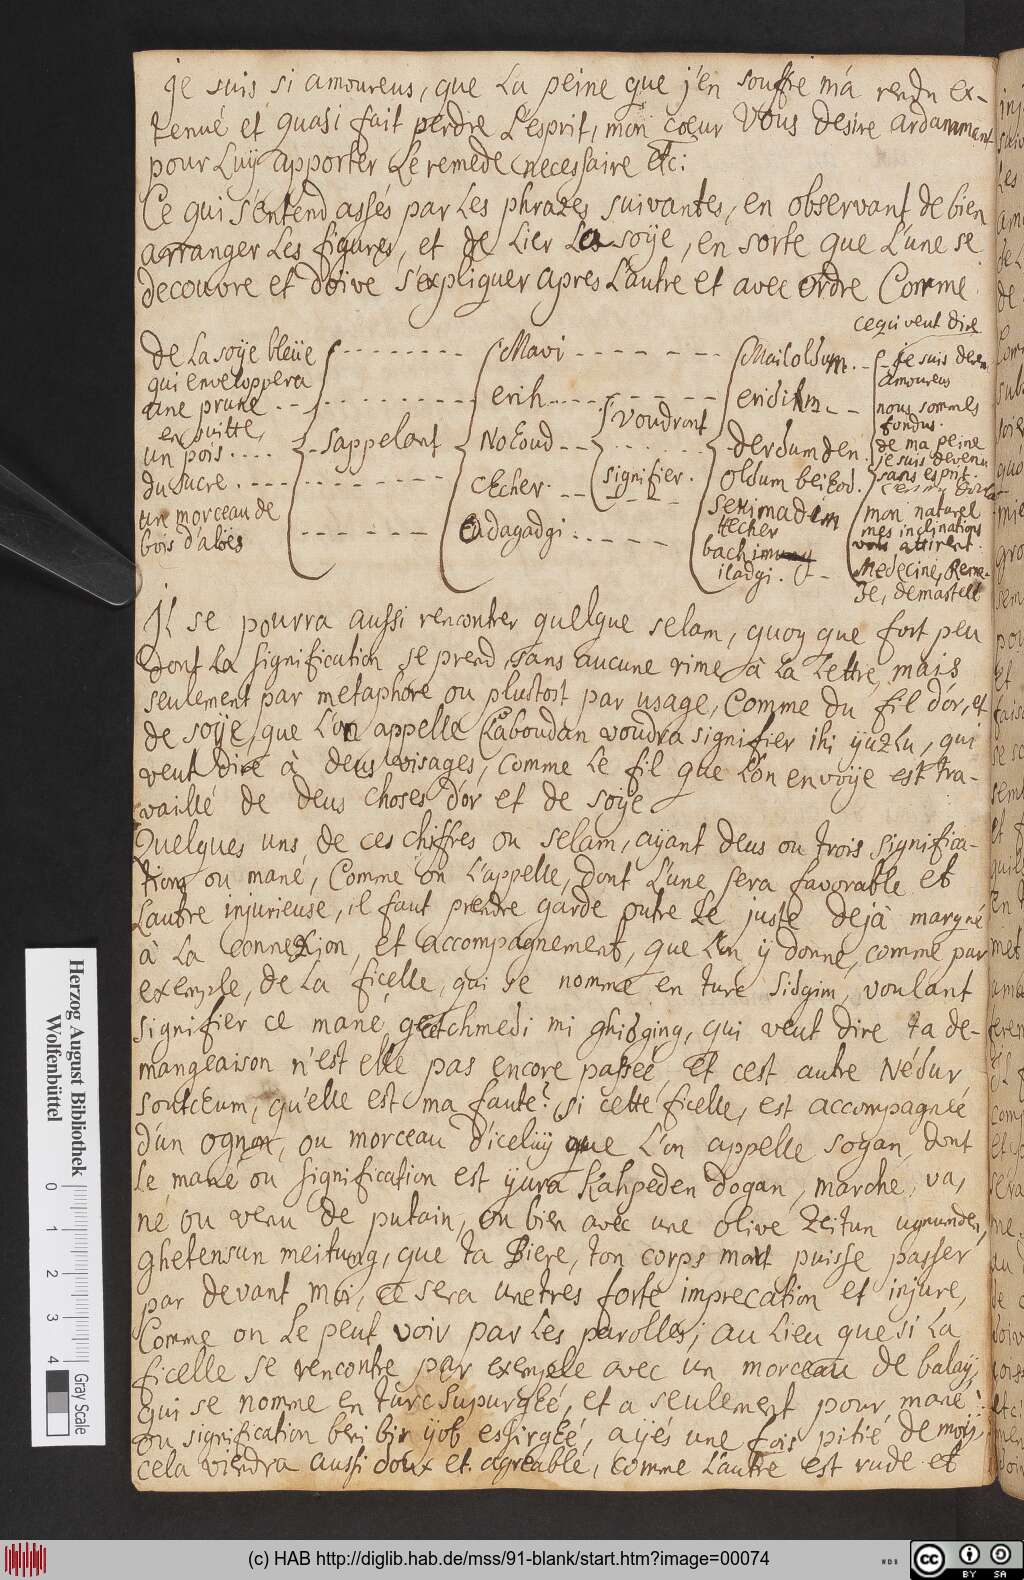 Je suis si amoureus, que La peine que j'en souffre m'a rendu ex-
tenué et quasi fait perdre L'esprit, mon cœur Vous desire ardamment
pour Luÿ apporter Le remede necessaire Etc:
Ce qui s'entend assés par Les phrazes suivantes, en observant de bien
arranger Les figures, et de Lier La soÿe, en sorte que L'une se
decouvre et doive s'expliquer apres L'autre et avec ordre Comme
ce qui veut dire
De La soÿe bleüe - - - Mavi - - - Mail oldum. - - je suis deven
qui enveloppera amoureus
une prune - - - erik - - - eridikm - - nous sommes
fondus.
en quitte, voudront
un pois. . . . sappelant - Nohoud - - - derdumden de ma peine
je suis devenu
du sucre - - - cEcher - - signifier. oldum beihod. sans esprit.
une morceau de seni madem mon naturel
tecker mes inclinations
bois d'aloës - - - Eadagadgi - - - vous attirent.
bachimung Medecine, Reme-
iladgi. de, de ma teste
Il se pourra aussi rencontrer quelque selam, quoy que fort peu
Dont La signification se prend, sans aucune rime à La Lettre, mais
seulement par metaphore ou plustost par usage, Comme du fil d'or, et
de soÿe, que L'on appelle Claboudan voudra signifier iki ÿuzlu, qui
veut dire à deus visages, comme Le fil que L'on envoÿe est tra-
vaillé de deus choses d'or et de soÿe
Quelques uns, de ces chiffres ou selam, aÿant deus ou trois significa-
tions ou mané, Comme on L'appelle, dont L'une sera favorable et
L'autre injurieuse, il faut prendre garde outre Le juste dejà marqué
à La connexion, et accompagnement, que L'on ÿ donne, comme par
exemple, de La ficelle, qui se nomme en turc sidgim, voulant
signifier ce mané, getchmedi mi ghidging, qui veut dire ta de-
mangeaison n'est elle pas encore passeé, Et cest autre Nédur
soutcEum, qu'elle est ma faute? si cette ficelle, est accompagnée
d'un ognon, ou morceau d'iceluÿ que L'on appelle sogan, dont
Le mané ou signification est ÿura Kahpeden dogan, marche, va,
né ou venu de putain, ou bien avec une olive Zeitun ugnunden,
ghetensun meitung, que ta Biere, ton corps mort puisse passer
par devant moi, ce sera une tres forte imprecation et injure,
Comme on Le peut voir par Les parolles; au Lieu que si La
ficelle se rencontre par exemple avec un morceau de balaÿ,
qui se nomme en turc supurgEé, et a seulement pour mané
ou signification beni bir ÿol essirgEé, aÿés une fois pitié de moÿ
cela viendra aussi doux et agreable, comme L'autre est rude et
Herzog August Bibliothek
Wolfenbüttel
0 1 2 3 4
Gray Scale
(c) HAB http://diglib.hab.de/mss/91-blank/start.htm?image=00074
WDB
cc BY SA